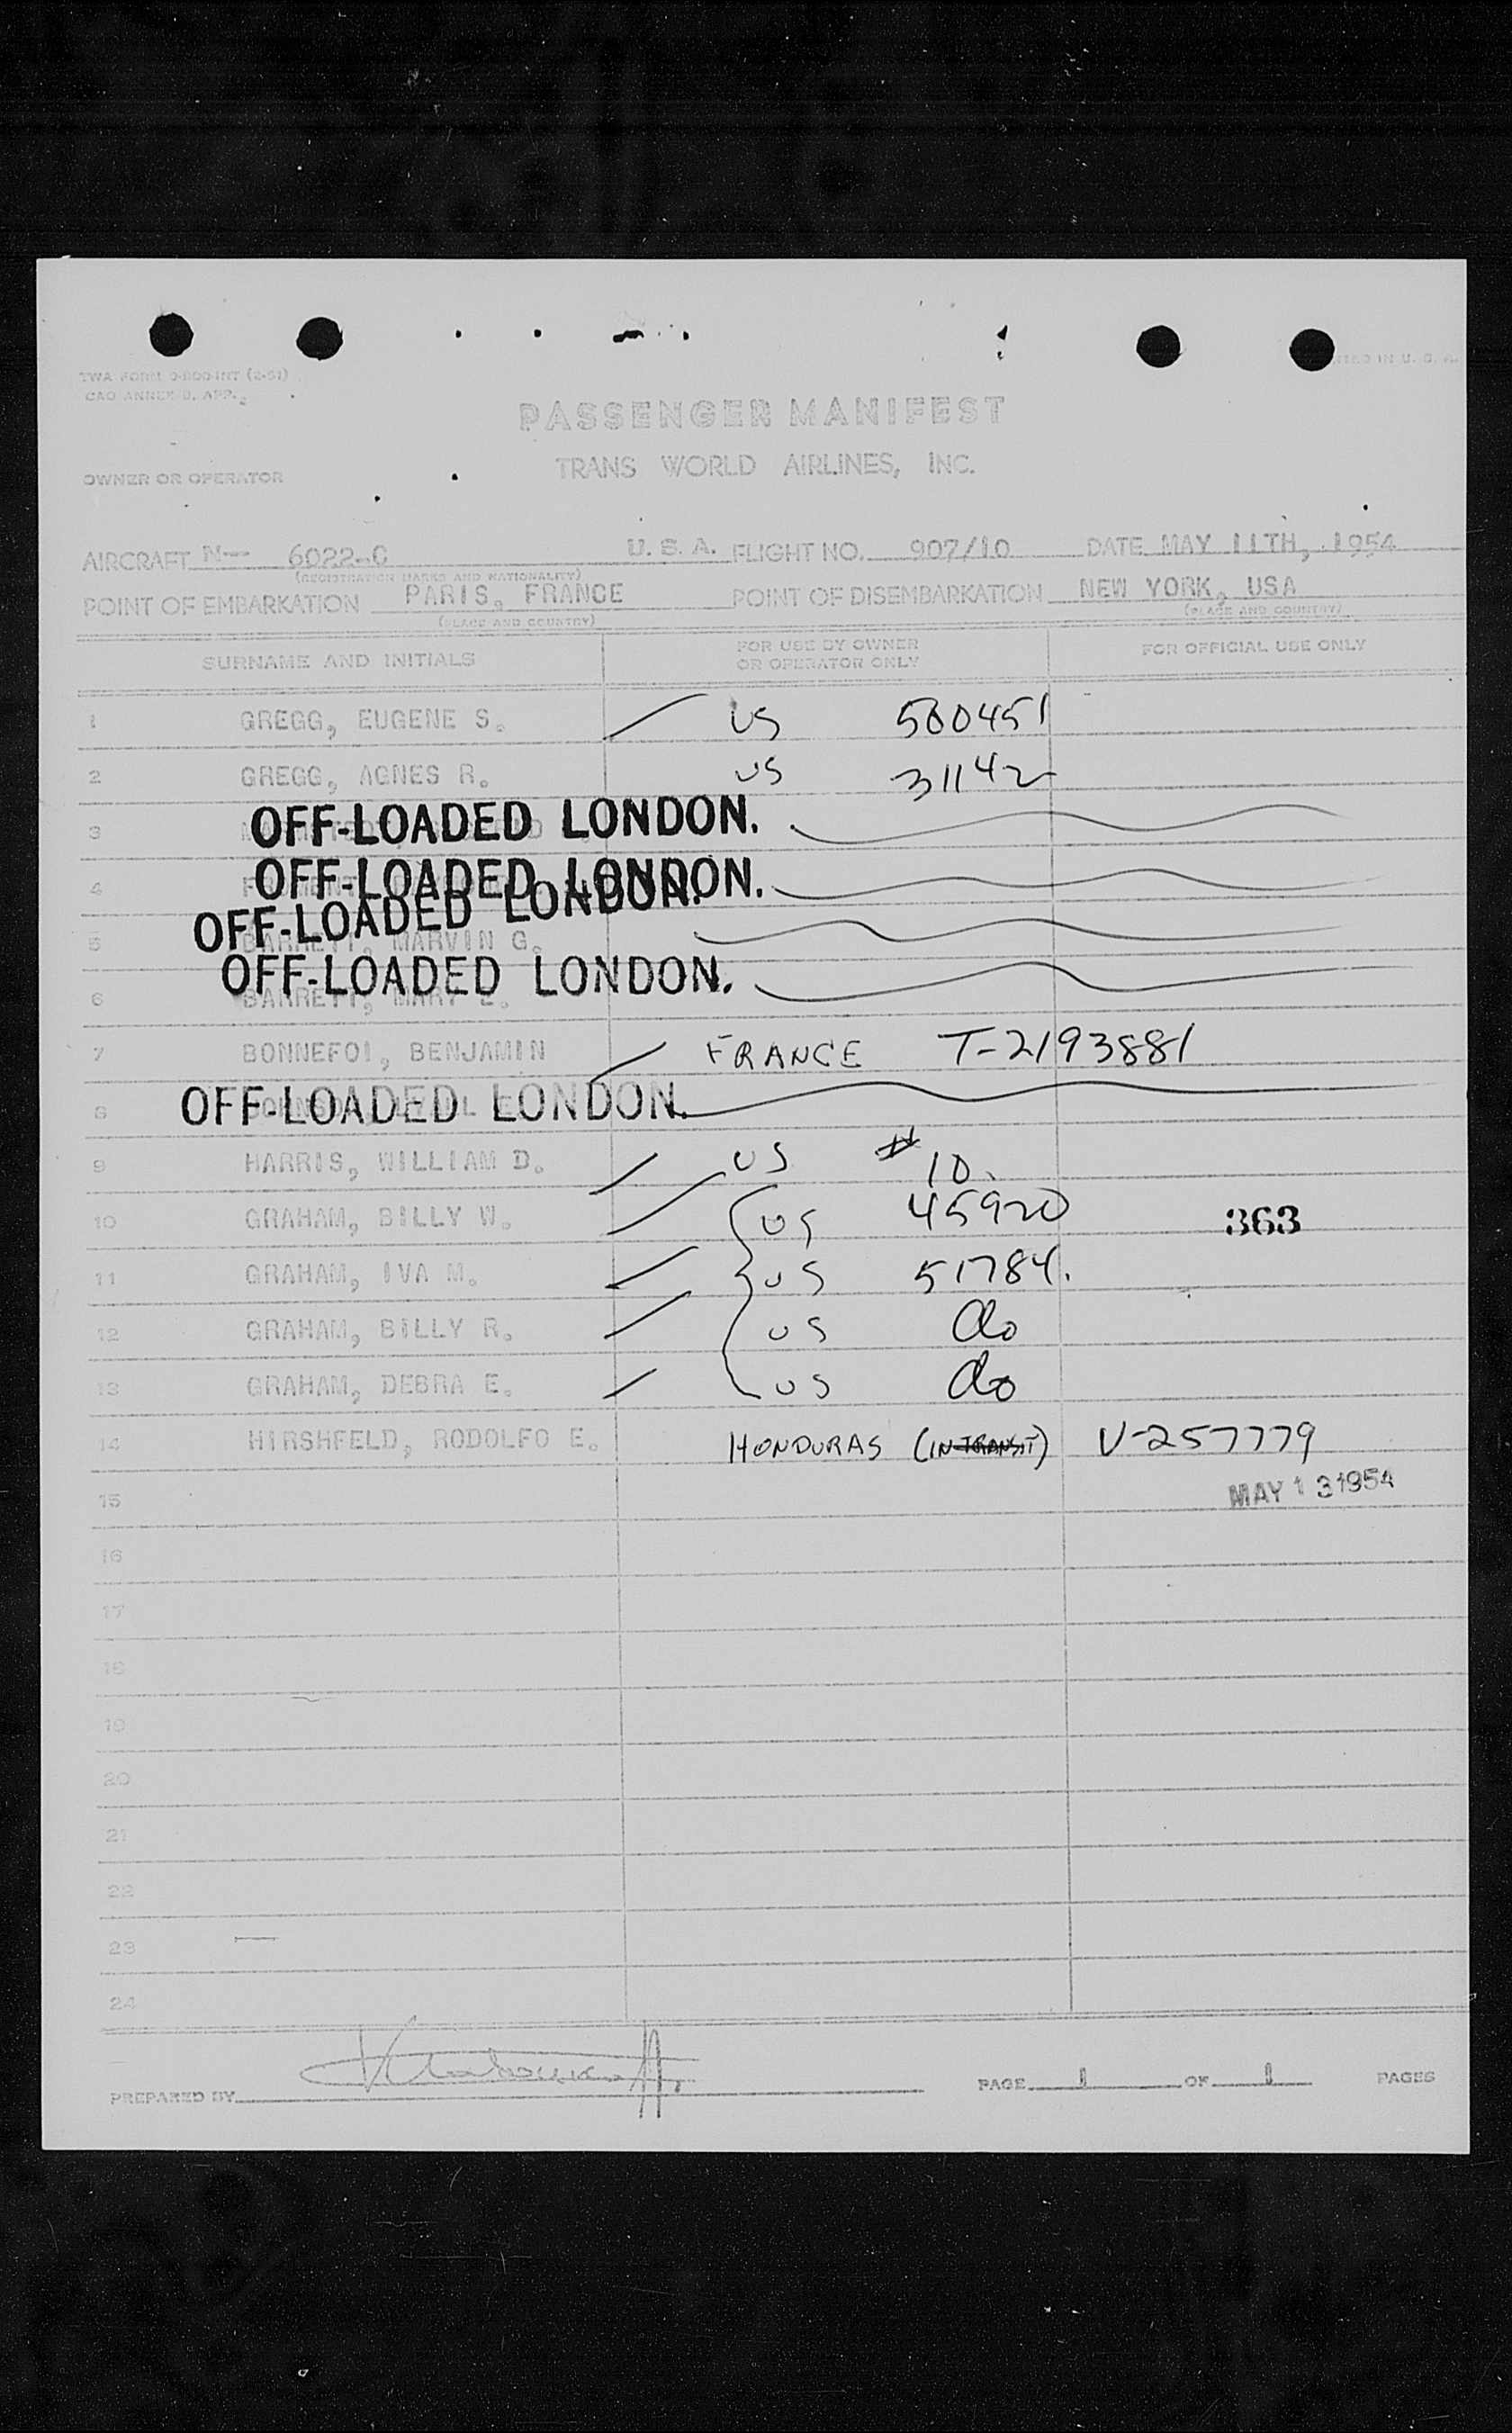 TWA FORM O-800-INT (2-51)
CAO ANNEX 9, APP. 2
PASSENGER MANIFEST
TRANS WORLD AIRLINES, INC.
OWNER OR OPERATOR
AIRCRAFT N— 6022-C U. S. A. FLIGHT NO. 907/10 DATE MAY 11TH, 1954
(REGISTRATION MARKS AND NATIONALITY)
POINT OF EMBARKATION PARIS, FRANCE POINT OF DISEMBARKATION NEW YORK, USA
(PLACE AND COUNTRY) (PLACE AND COUNTRY)
SURNAME AND INITIALS FOR USE BY OWNER OR OPERATOR ONLY FOR OFFICIAL USE ONLY
1 GREGG, EUGENE S. US 580451
2 GREGG, AGNES R. US 31142
3 OFF-LOADED LONDON.
4 OFF-LOADED LONDON.
OFF-LOADED LONDON.
5 BARRETT, MARVIN G.
OFF-LOADED LONDON.
6 BARRETT, MARY E.
7 BONNEFOI, BENJAMIN FRANCE T-2193881
8 OFF-LOADED LONDON.
9 HARRIS, WILLIAM D. US # 10.
10 GRAHAM, BILLY W. US 45920 363
11 GRAHAM, IVA M. US 51784.
12 GRAHAM, BILLY R. US do
13 GRAHAM, DEBRA E. US do
14 HIRSHFELD, RODOLFO E. HONDURAS (IN TRANSIT) V-257779
15 MAY 13 1954
16
17
18
19
20
21
22
23
24
PREPARED BY PAGE 1 OF 1 PAGES